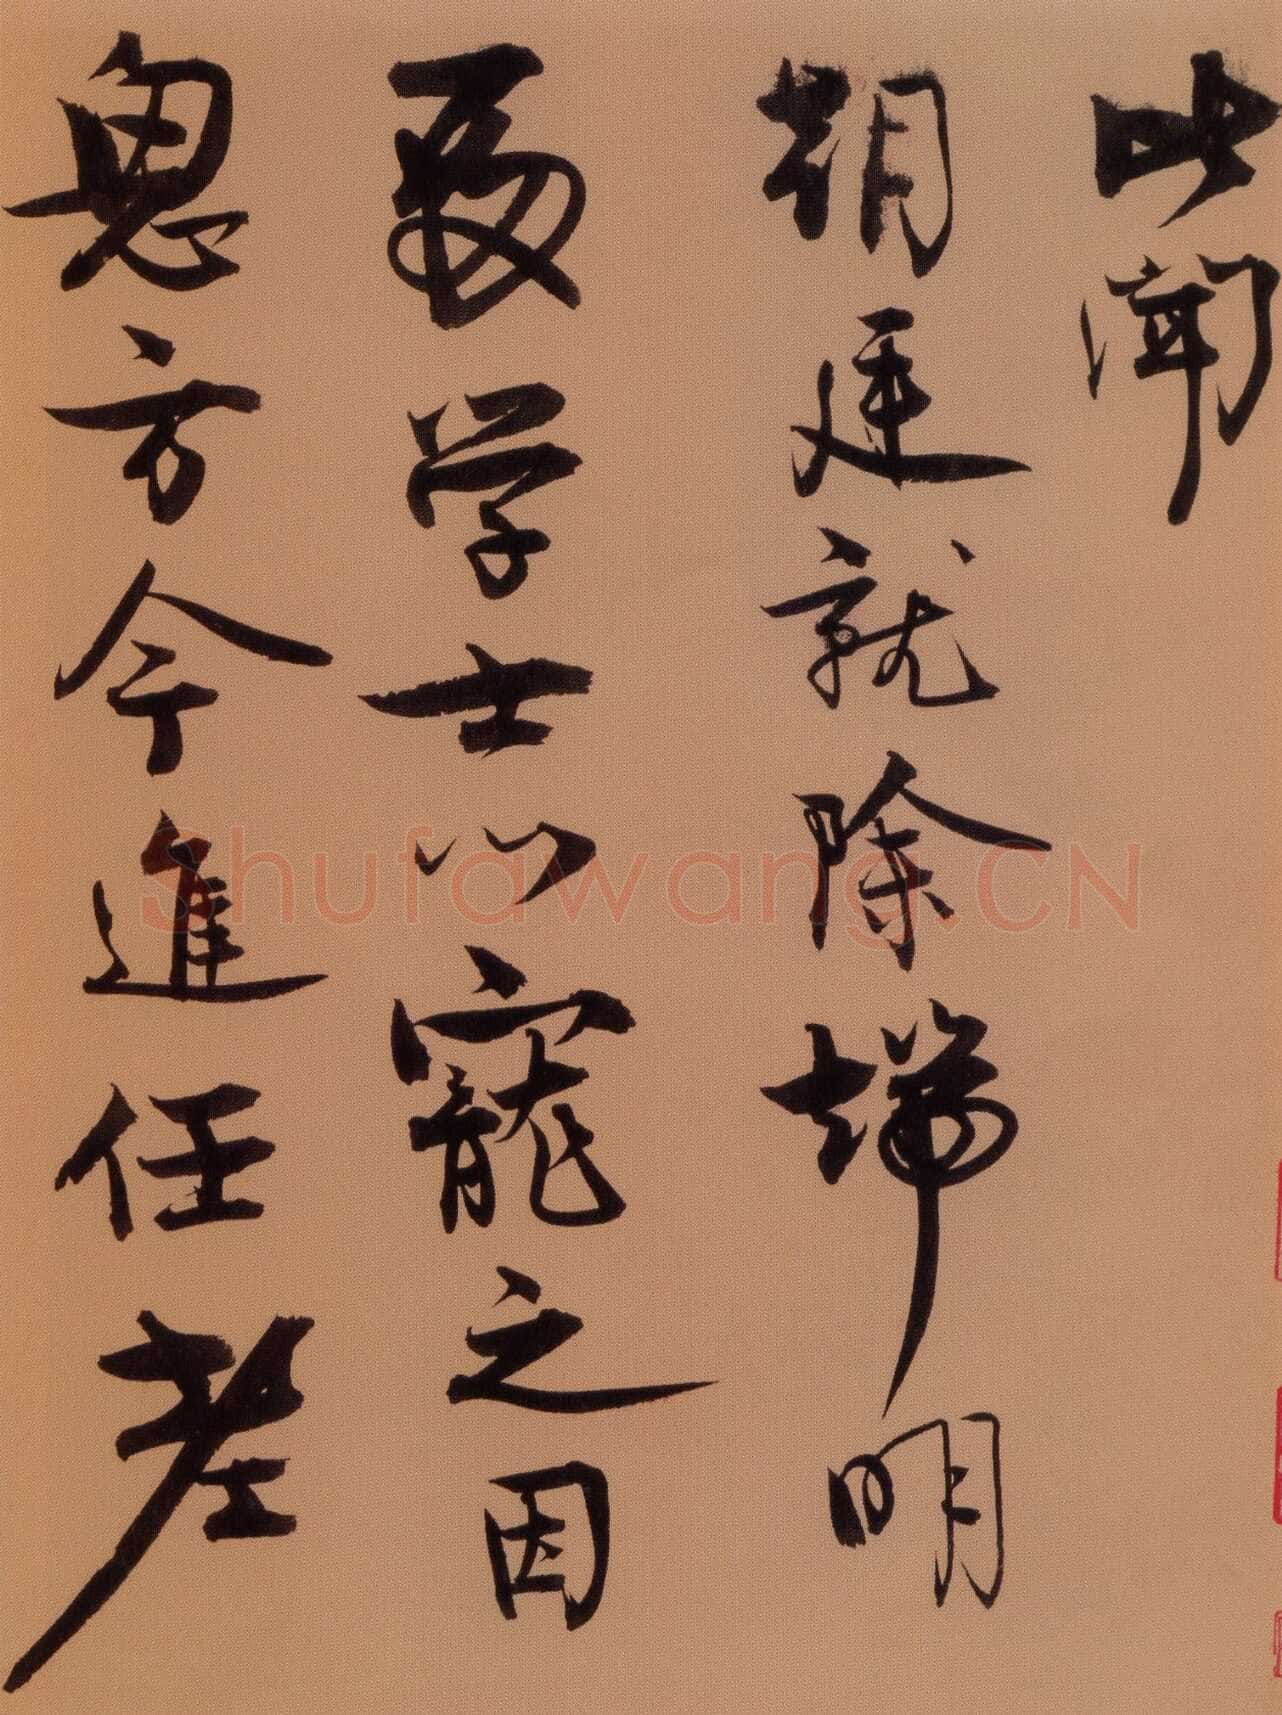 此聞
朝廷就除端明
殿学士以寵之因
愚方今進任差
Shufawang.CN